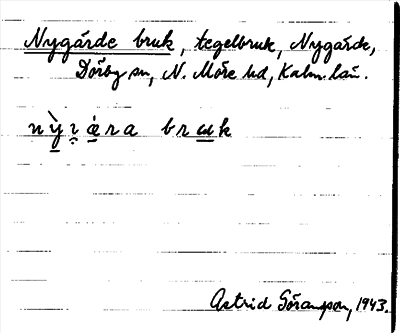 Nygårde bruk, tegelbruk, Nygårde,
Dörby sn, N. Möre hd, Kalm. län.
bruk
Astrid Göransson, 1943.